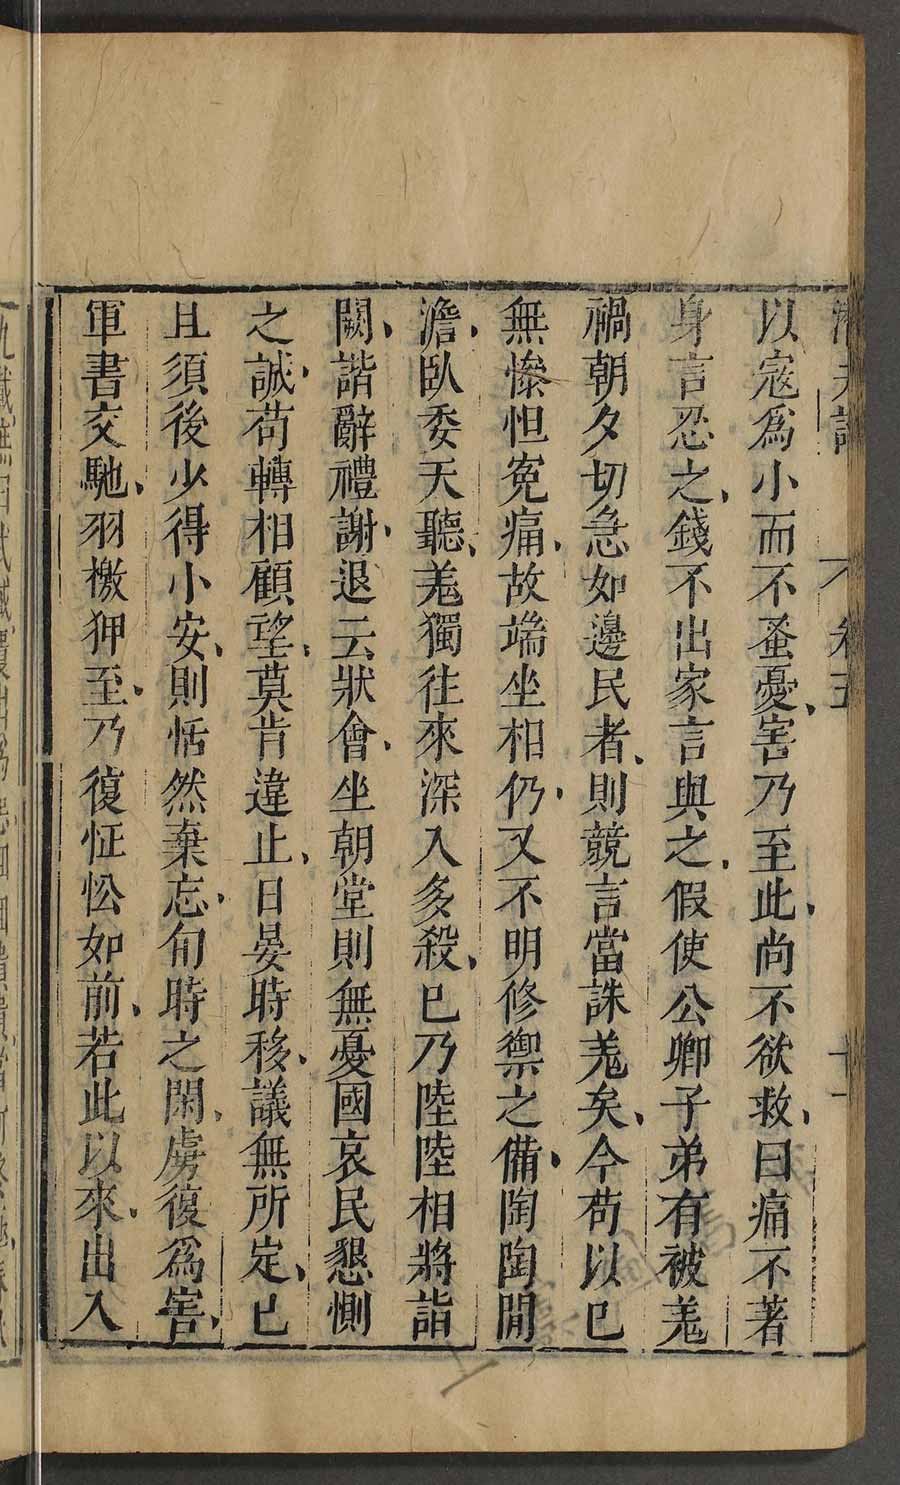 卷五
以寇爲小而不蚤憂害乃至此尚不欲救曰痛不著
身言忍之錢不出家言與之假使公卿子弟有被羗
禍朝夕切急如邊民者則競言當誅羗矣今苟以已
無慘怛寃痛故端坐相仍又不明修禦之備陶陶閒
澹臥委天聽羗獨往來深入多殺已乃陸陸相將詣
闕諧辭禮謝退云狀會坐朝堂則無憂國哀民懇惻
之誠苟轉相顧望莫肯違止日晏時移議無所定已
且須後少得小安則恬然棄忘旬時之閒虜復爲害
軍書交馳羽檄狎至乃復怔忪如前若此以來出入